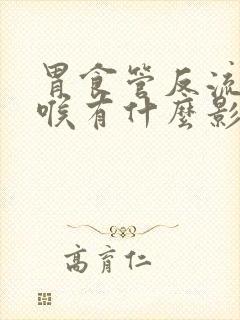 胃食管反流
喉有什麼影
高育仁